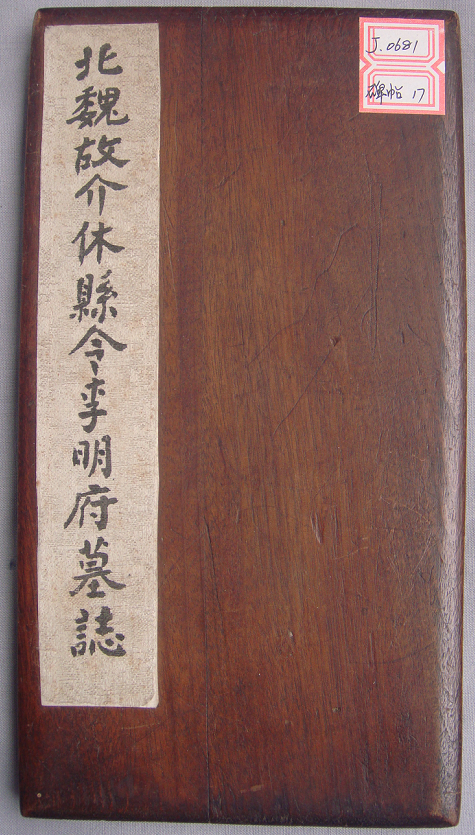 北魏故介休縣令李明府墓誌
J.0681
碑帖 17